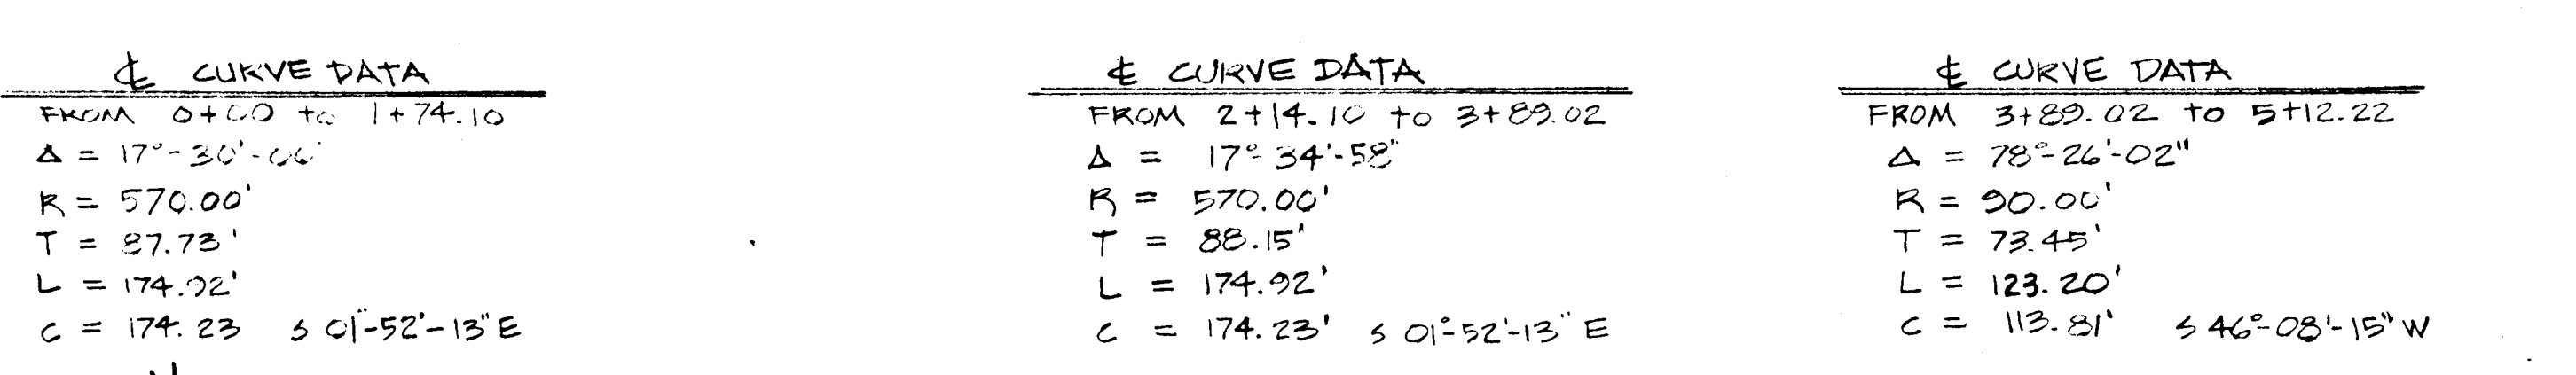 ℄ CURVE DATA
FROM 0+00 to 1+74.10
Δ = 17°-30'-00"
R = 570.00'
T = 87.73'
L = 174.92'
C = 174.23 S 01°-52'-13" E
℄ CURVE DATA
FROM 2+14.10 to 3+89.02
Δ = 17°-34'-58"
R = 570.00'
T = 88.15'
L = 174.92'
C = 174.23' S 01°-52'-13" E
℄ CURVE DATA
FROM 3+89.02 to 5+12.22
Δ = 78°-26'-02"
R = 90.00'
T = 73.45'
L = 123.20'
C = 113.81' S 46°-08'-15" W